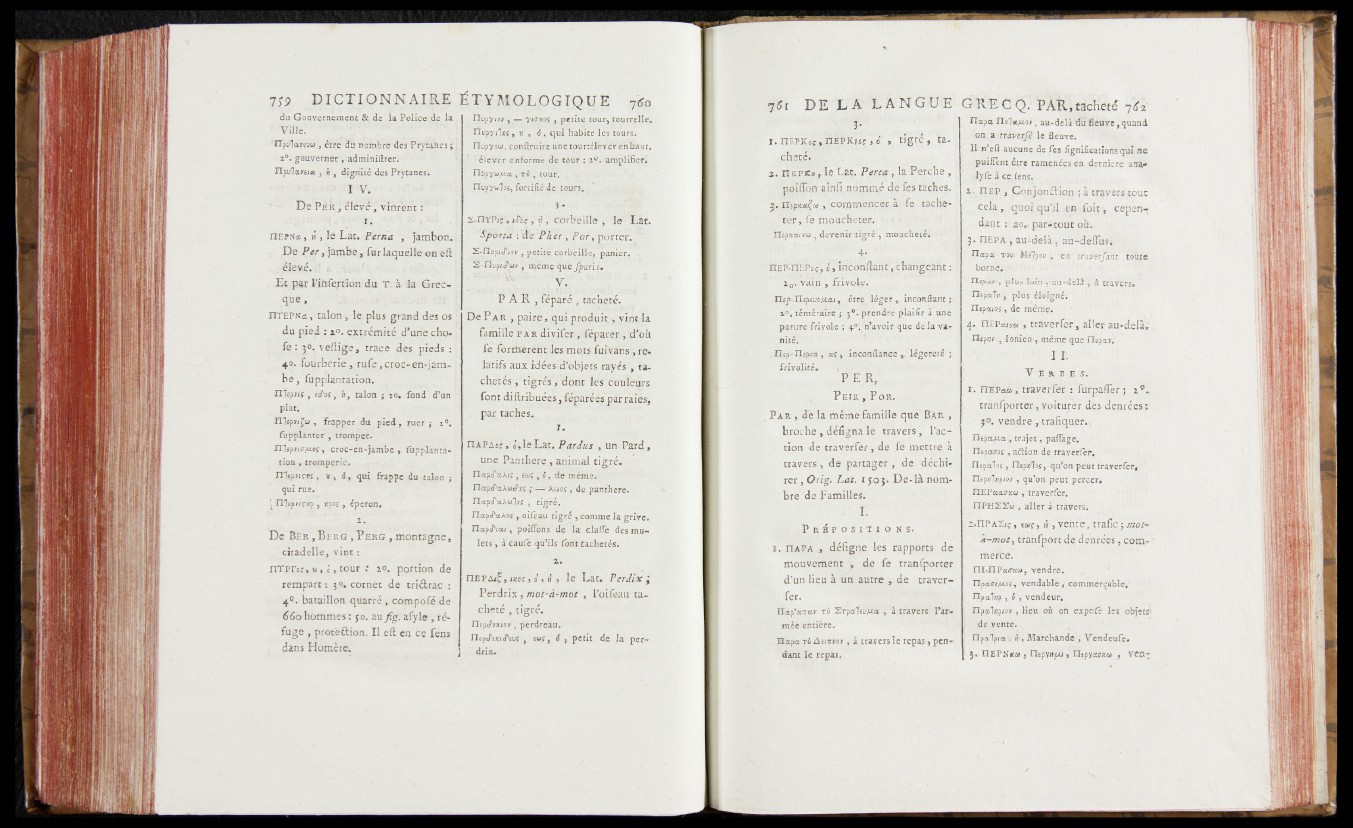 759 DICTIONNAIRE ÉTYMOLOGIQUE 760
du Gouvernement & de la Police de la
Ville.
Πρυ]ανευω, être du nombre des Prytanes;
2°. gouverner, adminiſtrer.
Πρυ]ανεια, ἡ, dignité des Prytanes.
I V.
De PER, élevé, vinrent :
1.
ΠΕΡΝα, ἡ, le Lat. Perna, jambon.
De Per, jambe, ſur laquelle on eſt
élevé.
Et par l'inſertion du T à la Grec-
que,
ΠΤΕΡΝα, talon, le plus grand des os
du pied : 2°. extrémité d'une cho-
ſe : 3°. veſtige, trace des pieds :
4°. fourberie, ruſe, croc-en-jam-
be, ſupplantation.
Π]ερνις, ιδος, ἡ, talon ; 2°. fond d'un
plat.
Π]ερνιζω, frapper du pied, ruer ; 2°.
ſupplanter, tromper.
Π]ερνισμος, croc-en-jambe, ſupplanta-
tion, tromperie.
Π]ερνιςης, ου, ὁ, qui frappe du talon ;
qui rue.
Π]ερνιςηρ, ηρος, éperon.
2.
De BER, BERG, PERG, montagne,
citadelle, vint :
ΠΥΡΓος, ου, ὁ, tour : 2°. portion de
rempart : 3°. cornet de trictrac :
4°. bataillon quarré, compoſé de
660 hommes : 5°. au fig. aſyle, ré-
fuge, protection. Il eſt en ce ſens
dans Homère.
Πυργιον, — γισκος, petite tour, tourrelle.
Πυργι]ης, ου, ὁ, qui habite les tours.
Πυργοω, conſtruire une tour: élever en haut,
élever en forme de tour : 2°. amplifier.
Πυργωμα, τὸ, tour.
Πυργω]ος, fortifié de tours.
3.
Σ-ΠΥΡις, ιδος, ἡ, corbeille, le Lat.
Sporta : de Pher, Por, porter.
Σ-Πυριδιον, petite corbeille, panier.
Σ-Πυριδων, même que ſpuris.
V.
PAR, ſéparé, tacheté.
De PAR, paire, qui produit, vint la
famille PAR diviſer, ſéparer, d'où
ſe formerent les mots ſuivans, re-
latifs aux idées d'objets rayés, ta-
chetés, tigrés, dont les couleurs
ſont diſtribuées, ſéparées par raies,
par taches.
1.
ΠΑΡΔος, ὁ, le Lat. Pardus, un Pard,
une Panthere, animal tigré.
Παρδαλις, εως, ἡ, de même.
Παρδαλιδευς ; — λειος, de panthere.
Παρδαλω]ος, tigré.
Παρδαλος, oiſeau tigré, comme la grive.
Παρδιαι, poiſſons de la claſſe des mu-
lets, à cauſe qu'ils ſont tachetés.
2.
ΠΕΡΔιξ, ικος, ὁ, ἡ, le Lat. Perdix ;
Perdrix, mot-à-mot, l'oiſeau ta-
cheté, tigré.
Περδικιον, perdreau.
Περδικιδευς, εως, ὁ, petit de la per-
drix.
761 DE LA LANGUE GRECQ. PAR, tacheté 762
3.
1. ΠΕΡΚος, ΠΕΡΚνος, ὁ, tigré, ta-
cheté.
2. ΠΕΡΚη, le Lat. Perca, la Perche,
poiſſon ainſi nommé de ſes taches.
3. Περκαζω, commencer à ſe tache-
ter, ſe moucheter.
Περκαινω, devenir tigré, moucheté.
4.
ΠΕΡ-ΠΕΡος, ὁ, inconſtant, changeant :
2°. vain, frivole.
Περ-Περευομαι, être léger, inconſtant ;
2°. téméraire ; 3°. prendre plaiſir à une
parure frivole ; 4°. n'avoir que de la va-
nité.
Περ-Περεια, ας, inconſtance, légereté ;
frivolité.
PER,
PEIR, POR.
PAR, de la même famille que BAR,
broche, déſigna le travers, l'ac-
tion de traverſer, de ſe mettre à
travers, de partager, de déchi-
rer, Orig. Lat. 1503. De-là nom-
bre de Familles.
I.
PRÉPOSITIONS.
1. ΠΑΡΑ, déſigne les rapports de
mouvement, de ſe tranſporter
d'un lieu à un autre, de traver-
ſer.
Παρ'απαν τὸ Στρα]ευμα, à travers l'ar-
mée entière.
Παρα τὸ Δειπνον, à travers le repas, pen-
dant le repas.
Παρα Πο]αμον, au-delà du fleuve, quand
on a traverſé le fleuve.
Il n'eſt aucune de ſes ſignifications qui ne
puiſſent être ramenées en derniere ana-
lyſe à ce ſens.
2. ΠΕΡ, Conjonction ; à travers tout
cela, quoi qu'il en ſoit, cepen-
dant : 2°. par-tout où.
3. ΠΕΡΑ, au-delà, au-deſſus.
Παρα του Με]ρου, en traverſant toute
borne.
Περαν, plus loin, au-delà, à travers.
Περαι]ερ, plus éloigné.
Περαιος, de même.
4. ΠΕΡαιοω, traverſer, aller au-delà,
Περην, Ionien, même que Περαν.
I I.
VERBES.
1. ΠΕΡαω, traverſer : ſurpaſſer ; 2°.
tranſporter, voiturer des denrées :
3°. vendre, trafiquer.
Περαμα, trajet, paſſage.
Περασις, action de traverſer.
Περα]ος, Περη]ος, qu'on peut traverſer.
Περη]ηριον, qu'on peut percer.
ΠΕΡαασκω, traverſer.
ΠΡΗΣΣω, aller à travers.
2. ΠΡΑΣις, εως, ἡ, vente, trafic ; mot-
à-mot, tranſport de denrées, com-
merce.
ΠΙ-ΠΡασκω, vendre.
Πρασιμος, vendable, commerçable.
Πρα]ηρ, ὁ, vendeur.
Πρα]ηριον, lieu où on expoſe les objets
de vente.
Πρα]ρια, ἡ, Marchande, Vendeuſe.
3. ΠΕΡΝαω, Περνημι, Περνασκω, ven-